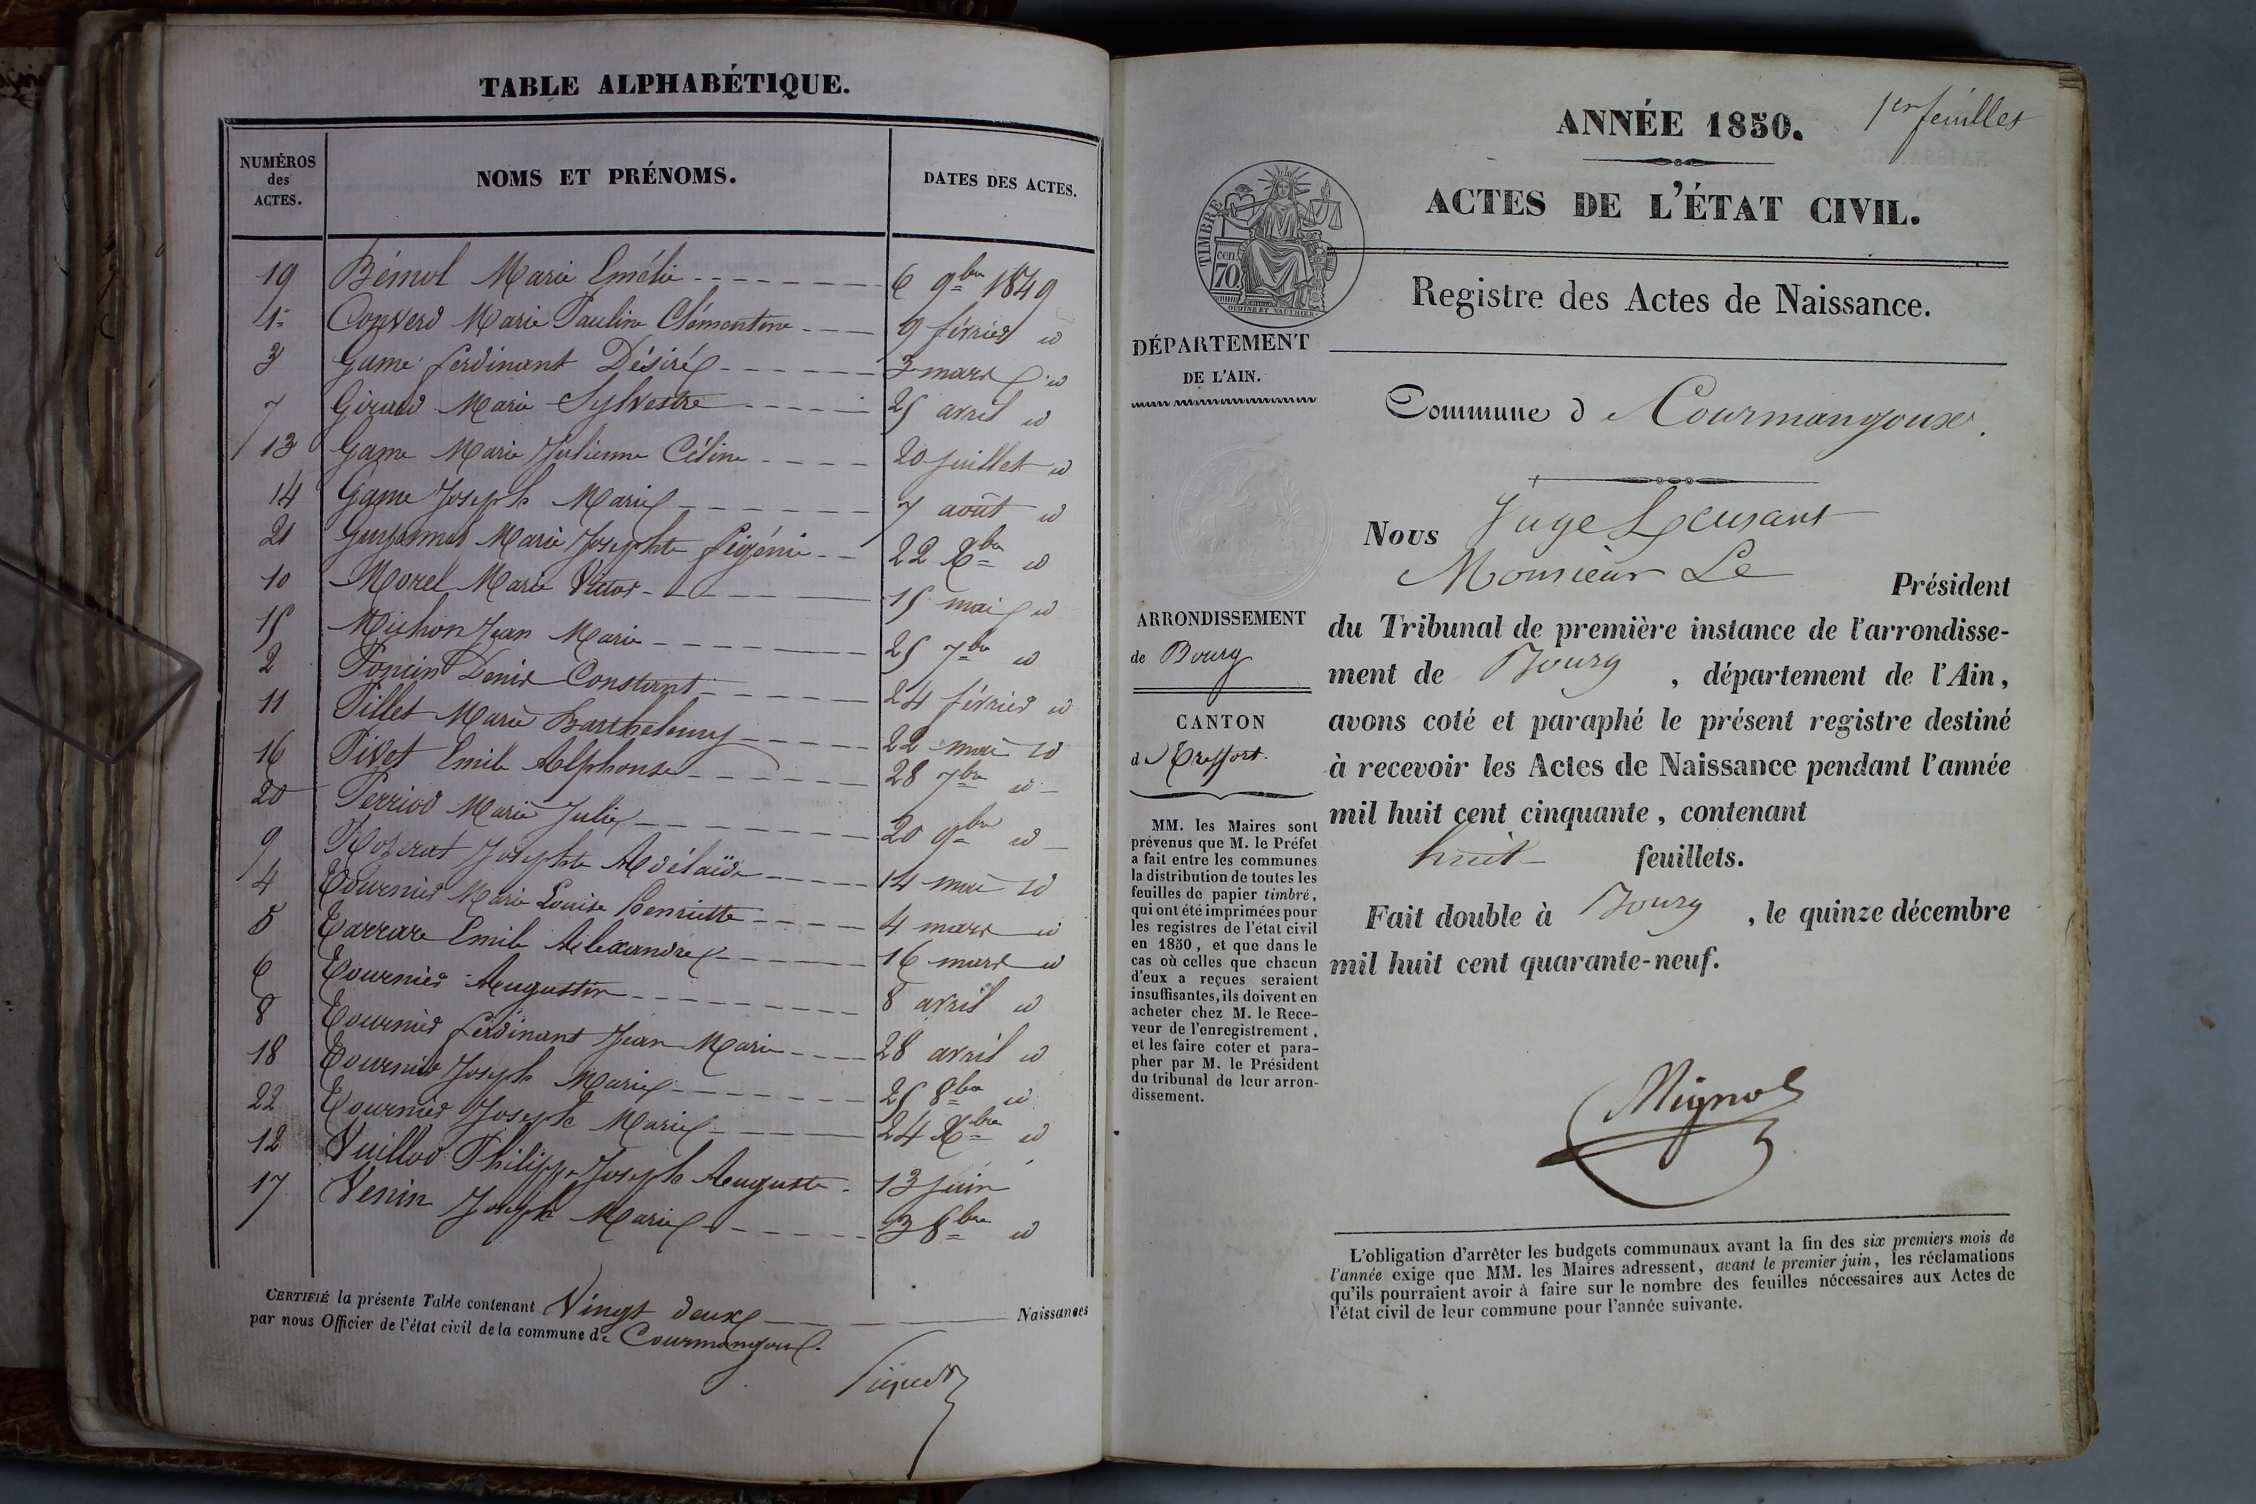 TABLE ALPHABÉTIQUE.
NUMÉROS des ACTES. NOMS ET PRÉNOMS. DATES DES ACTES.
19 Bémol Marie Emélie 6 9bre 1849
1er Converd Marie Pauline Clémentine 9 février id
3 Game ferdinant Désiré 3 mars id
7 Giraud Marie Sylvestre 25 avril id
13 Game Marie Julienne Céline 20 juillet id
14 Game Joseph Marie 7 août id
21 Marie Josephte 22 Xbre id
10 Morel Marie Victor 15 mai id
15 Michon Jean Marie 25 7bre id
2 Poncin Denis Constant 24 février id
11 Pillet Marie Barthelemy 22 mai id
16 Pivet Emile Alphonse 28 7bre id
20 Perriod Marie Julie 20 9bre id
9 Rozerat Josephte Adélaïde 14 mai id
4 Tournier Marie Louise henriette 4 mars id
5 Tarrare Emile Alexandre 16 mars id
6 Tournier Augustin 8 avril id
8 Tournier ferdinant Jean Marie 28 avril id
18 Tournier Joseph Marie 25 8bre id
22 Tournier Joseph Marie 24 Xbre id
12 Vuillod Philippe Joseph Auguste 13 juin
17 Venin Joseph Marie 3 8bre id
CERTIFIÉ la présente Table contenant Vingt deux Naissances
par nous Officier de l'état civil de la commune de Courmangoux.
1er feuillet
ANNÉE 1850.
ACTES DE L'ÉTAT CIVIL.
TIMBRE
70 cen
Registre des Actes de Naissance.
DÉPARTEMENT
DE L'AIN.
Commune d Courmangoux.
Nous Juge
Monsieur Le Président
du Tribunal de première instance de l'arrondisse-
ment de Bourg, département de l'Ain,
avons coté et paraphé le présent registre destiné
à recevoir les Actes de Naissance pendant l'année
mil huit cent cinquante, contenant
huit feuillets.
Fait double à Bourg, le quinze décembre
mil huit cent quarante-neuf.
ARRONDISSEMENT
de Bourg
CANTON
d Treffort.
MM. les Maires sont
prévenus que M. le Préfet
a fait entre les communes
la distribution de toutes les
feuilles de papier timbré,
qui ont été imprimées pour
les registres de l'état civil
en 1850, et que dans le
cas où celles que chacun
d'eux a reçues seraient
insuffisantes, ils doivent en
acheter chez M. le Rece-
veur de l'enregistrement,
et les faire coter et para-
pher par M. le Président
du tribunal de leur arron-
dissement.
L'obligation d'arrêter les budgets communaux avant la fin des six premiers mois de
l'année exige que MM. les Maires adressent, avant le premier juin, les réclamations
qu'ils pourraient avoir à faire sur le nombre des feuilles nécessaires aux Actes de
l'état civil de leur commune pour l'année suivante.